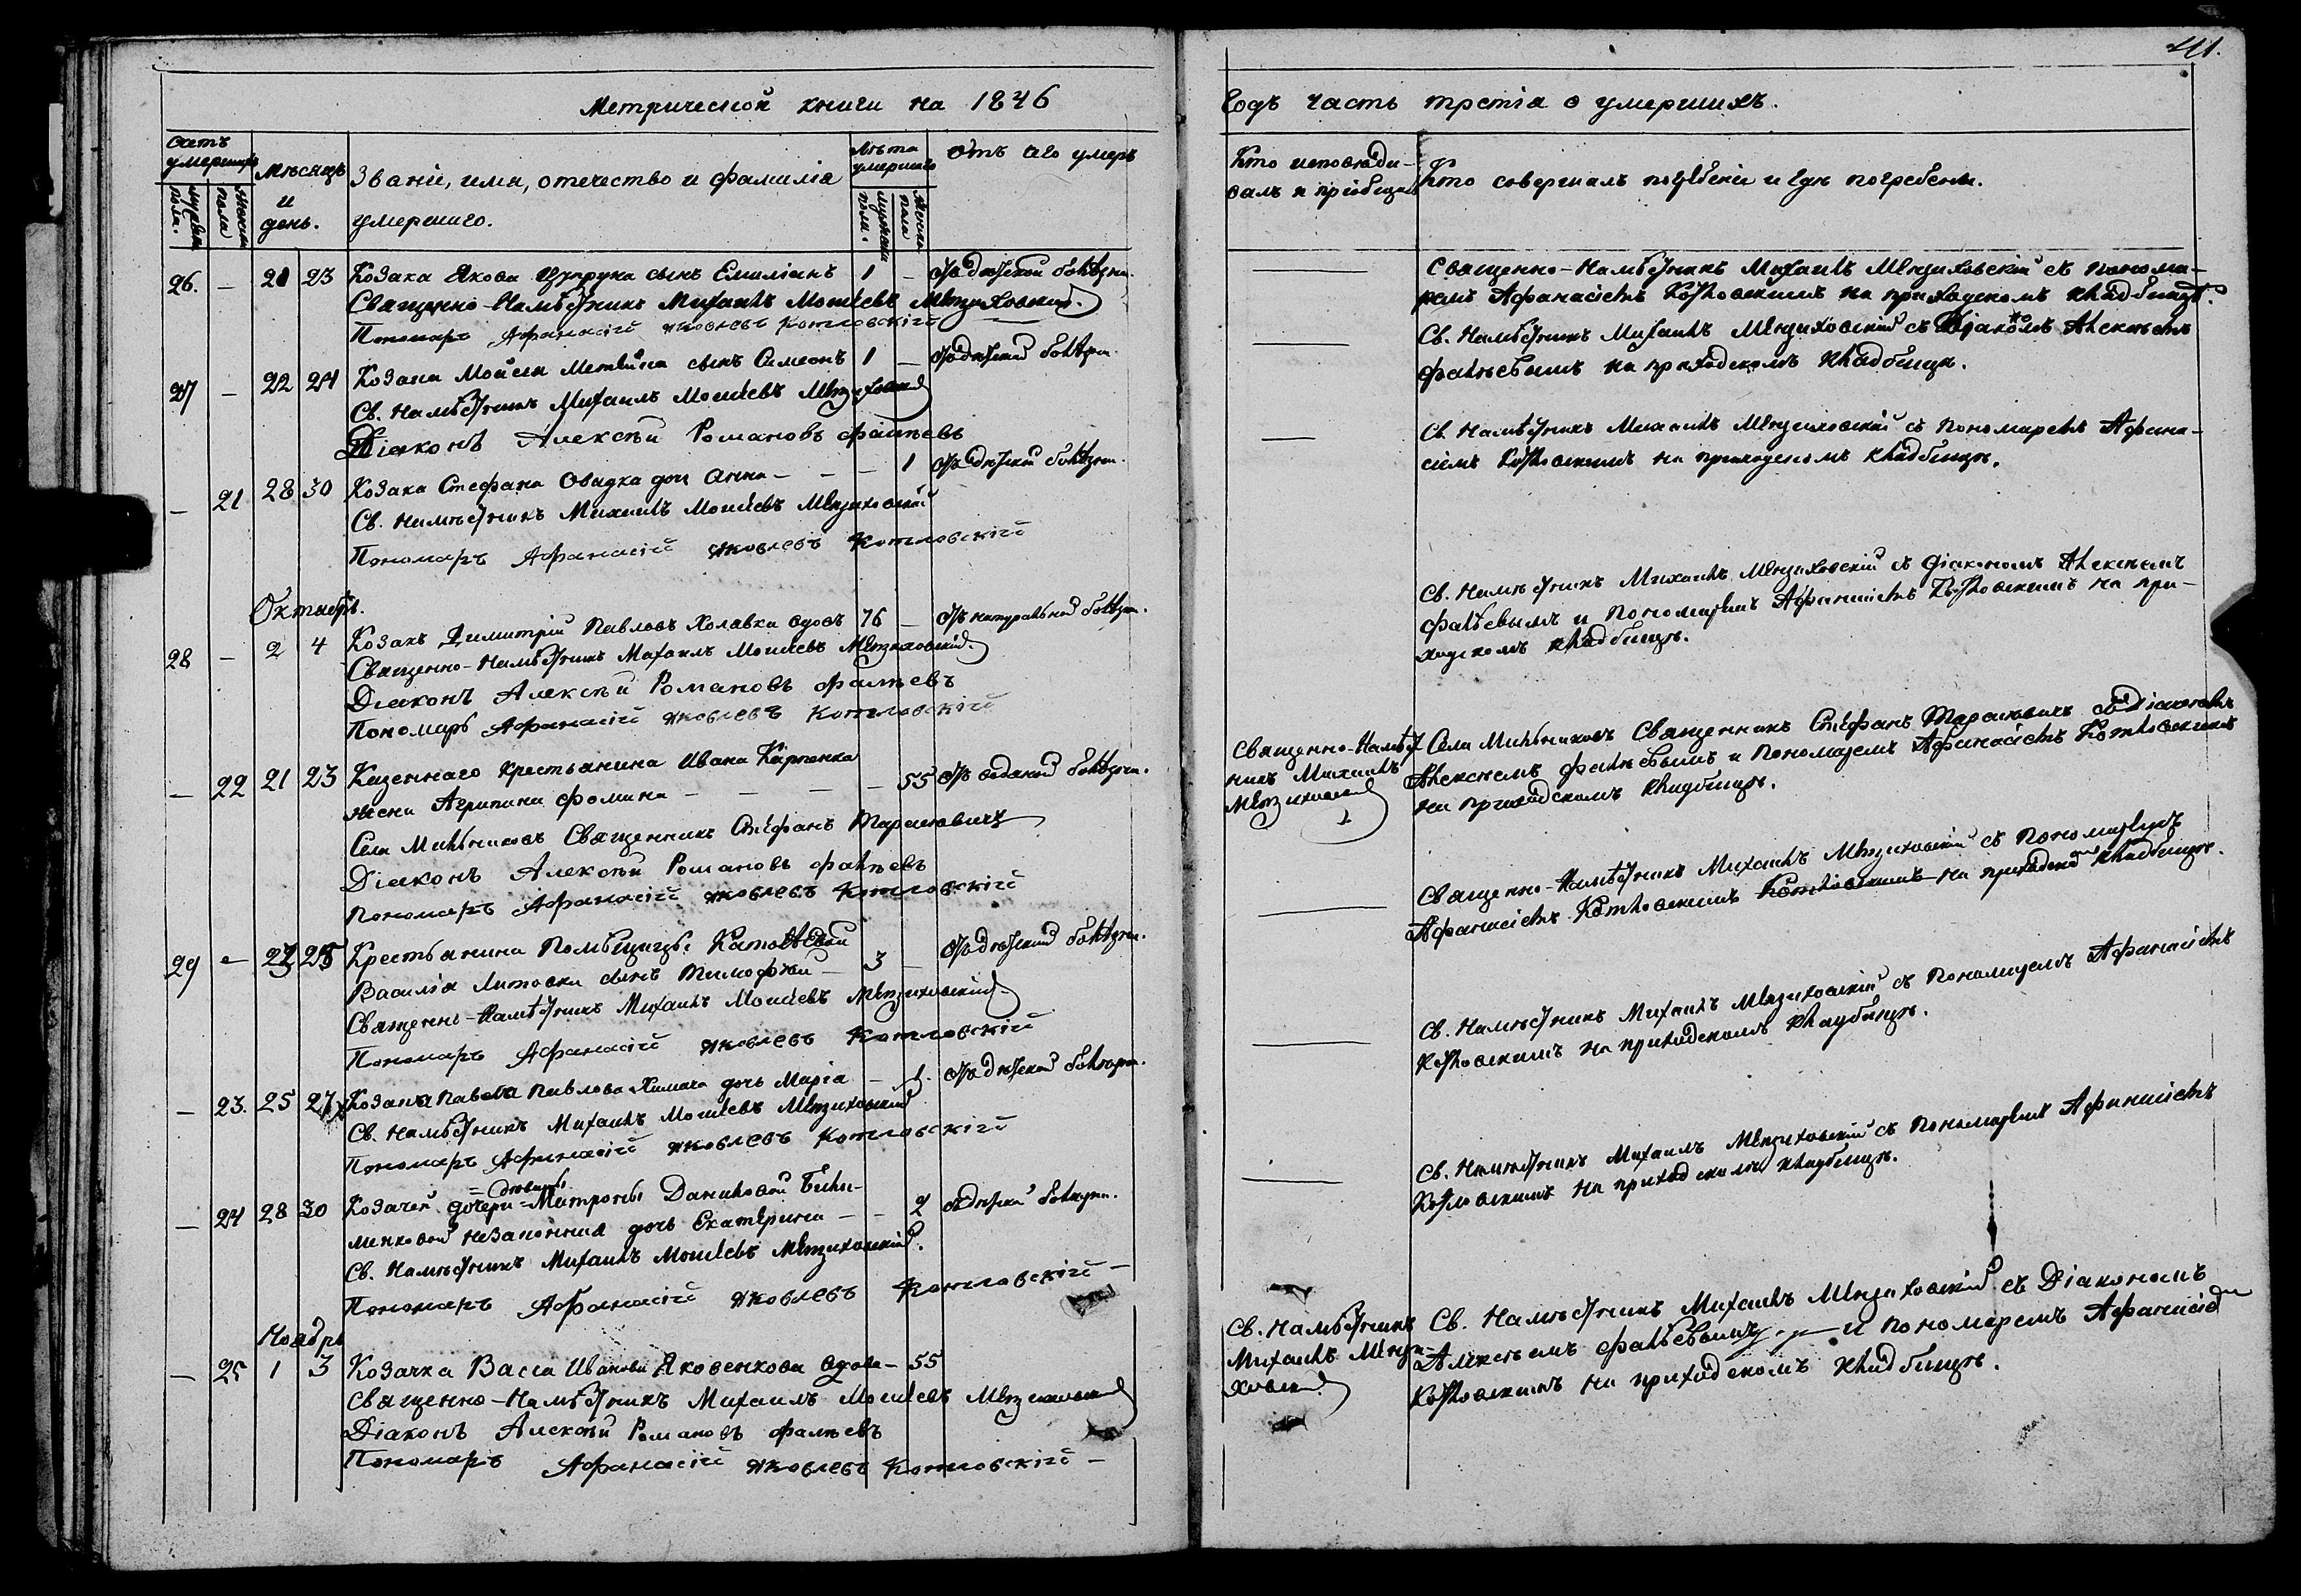 41.
Метрической книги на 1846
Годъ часть третіа о умершихъ.
Счетъ умершихъ
мужеска пола.
женска пола
Мѣсяцъ и день.
Званіе, имя, отечество и фамиліа умершаго.
Лѣта умершаго
мужеска пола.
женска пола
Отъ чего умеръ
Кто исповѣдывалъ и пріобщалъ
Кто совершалъ погребеніе и гдѣ погребены.
26. — 21 23 Козака Якова Цупруна сынъ Емиліанъ 1 — Отъ дѣтской болѣзни.
Священно-Намѣстникъ Михаилъ Моисеевъ
Пономарь Афанасій Яковлевъ Котловскій
— Священно-Намѣстникъ Михаилъ съ Понома-
ремъ Афанасіемъ Котловскимъ на приходскомъ кладбищѣ.
27 — 22 24 Козака Мойсея сынъ Симеонъ 1 — Отъ дѣтской болѣзни.
Св. Намѣстникъ Михаилъ Моисеевъ
Діаконъ Алексѣй Романовъ Фалѣевъ
— Св. Намѣстникъ Михаилъ съ Діакономъ Алексѣемъ
Фалѣевымъ на приходскомъ кладбищѣ.
— 21 28 30 Козака Стефана Овадка дочь Анна — — — 1 Отъ дѣтской болѣзни.
Св. Намѣстникъ Михаилъ Моисеевъ
Пономарь Афанасій Яковлевъ Котловскій
— Св. Намѣстникъ Михаилъ съ Пономаремъ Афана-
сіемъ Котловскимъ на приходскомъ кладбищѣ.
Октябрь.
28 — 2 4 Козакъ Димитрій Павловъ Холавка вдовъ 76 — Отъ натуральной болѣзни.
Священно-Намѣстникъ Михаилъ Моисеевъ
Діаконъ Алексѣй Романовъ Фалѣевъ
Пономарь Афанасій Яковлевъ Котловскій
— Св. Намѣстникъ Михаилъ съ Діакономъ Алексѣемъ
Фалѣевымъ и Пономаремъ Афанасіемъ Котловскимъ на при-
ходскомъ кладбищѣ.
— 22 21 23 Казеннаго крестьянина Ивана Карпенка
жена Агрипина Фомина — — — — 55 Отъ водяной болѣзни.
Села Мильниковъ Священникъ Стефанъ Тарасевичъ
Діаконъ Алексѣй Романовъ Фалѣевъ
Пономарь Афанасій Яковлевъ Котловскій
Священно-Намѣст
никъ Михаилъ
Села Мильниковъ Священникъ Стефанъ Тарасевичъ съ Діакономъ
Алексѣемъ Фалѣевымъ и Пономаремъ Афанасіемъ Котловскимъ
на приходскомъ кладбищѣ.
29 — 23 25 Крестьянина Помѣщицы
Василія Литовки сынъ Тимофей — 3 — Отъ дѣтской болѣзни.
Священно-Намѣстникъ Михаилъ Моисеевъ
Пономарь Афанасій Яковлевъ Котловскій
— Священно-Намѣстникъ Михаилъ съ Пономаремъ
Афанасіемъ Котловскимъ Котловскимъ на приходскомъ кладбищѣ.
— 23. 25 27 Козака Павла Павлова Химача дочь Маріа — 1. Отъ дѣтской болѣзни.
Св. Намѣстникъ Михаилъ Моисеевъ
Пономарь Афанасій Яковлевъ Котловскій
— Св. Намѣстникъ Михаилъ съ Пономаремъ Афанасіемъ
Котловскимъ на приходскомъ кладбищѣ.
— 24 28 30 Козачей дочери Матроны Даниловой Били-
менковой незаконная дочь Екатерина — — 2 Отъ дѣтской болѣзни.
Св. Намѣстникъ Михаилъ Моисеевъ
Пономарь Афанасій Яковлевъ Котловскій —
— Св. Намѣстникъ Михаилъ съ Пономаремъ Афанасіемъ
Котловскимъ на приходскомъ кладбищѣ.
Ноябрь
— 25 1 3 Козачка Васса Иванова Яковенкова вдова — 55
Священно-Намѣстникъ Михаилъ Моисеевъ
Діаконъ Алексѣй Романовъ Фалѣевъ
Пономарь Афанасій Яковлевъ Котловскій —
Св. Намѣстникъ
Михаилъ
Св. Намѣстникъ Михаилъ съ Діакономъ
Алексѣемъ Фалѣевымъ и Пономаремъ Афанасіемъ
Котловскимъ на приходскомъ кладбищѣ.